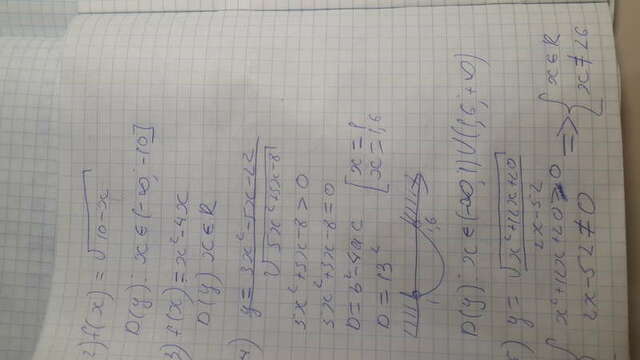 2) f(x) = √10-x
D(y): x∈(-∞; -10]
3) f(x) = x²-4x
D(y) x∈R
4) y = 3x²-5x-22 / √5x²+3x-8
5x²+3x-8>0
5x²+3x-8=0
D=b²-4ac [x=1
D=13² [x=1,6
1 1,6
D(y): x∈(-∞;1)∪(1,6;+∞)
) y = √x²+12x+20 / 2x-52
{x²+12x+20≥0 => {x∈R
2x-52≠0 {x≠26